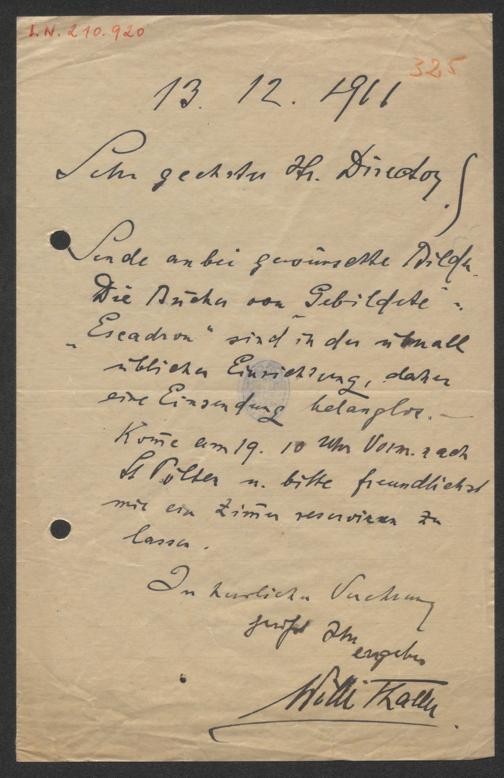 I.N. 210.920
325
13. 12. 1911
Sehr geehrter Hr. Director!
Sende anbei gewünschte Bilder
Die Bücher von "Gebildete" =
"Escadron" sind in der überall
üblichen Einrichtung, daher
eine Einsendung belanglos. —
Kom̄e am 19. 10 Uhr Vorm. nach
St Pölten u. bitte freundlichst
mir ein Zim̄er reservieren zu
lassen.
In herzlicher Verehrung
grüßt Ihr
ergeben
Willi Thaller.